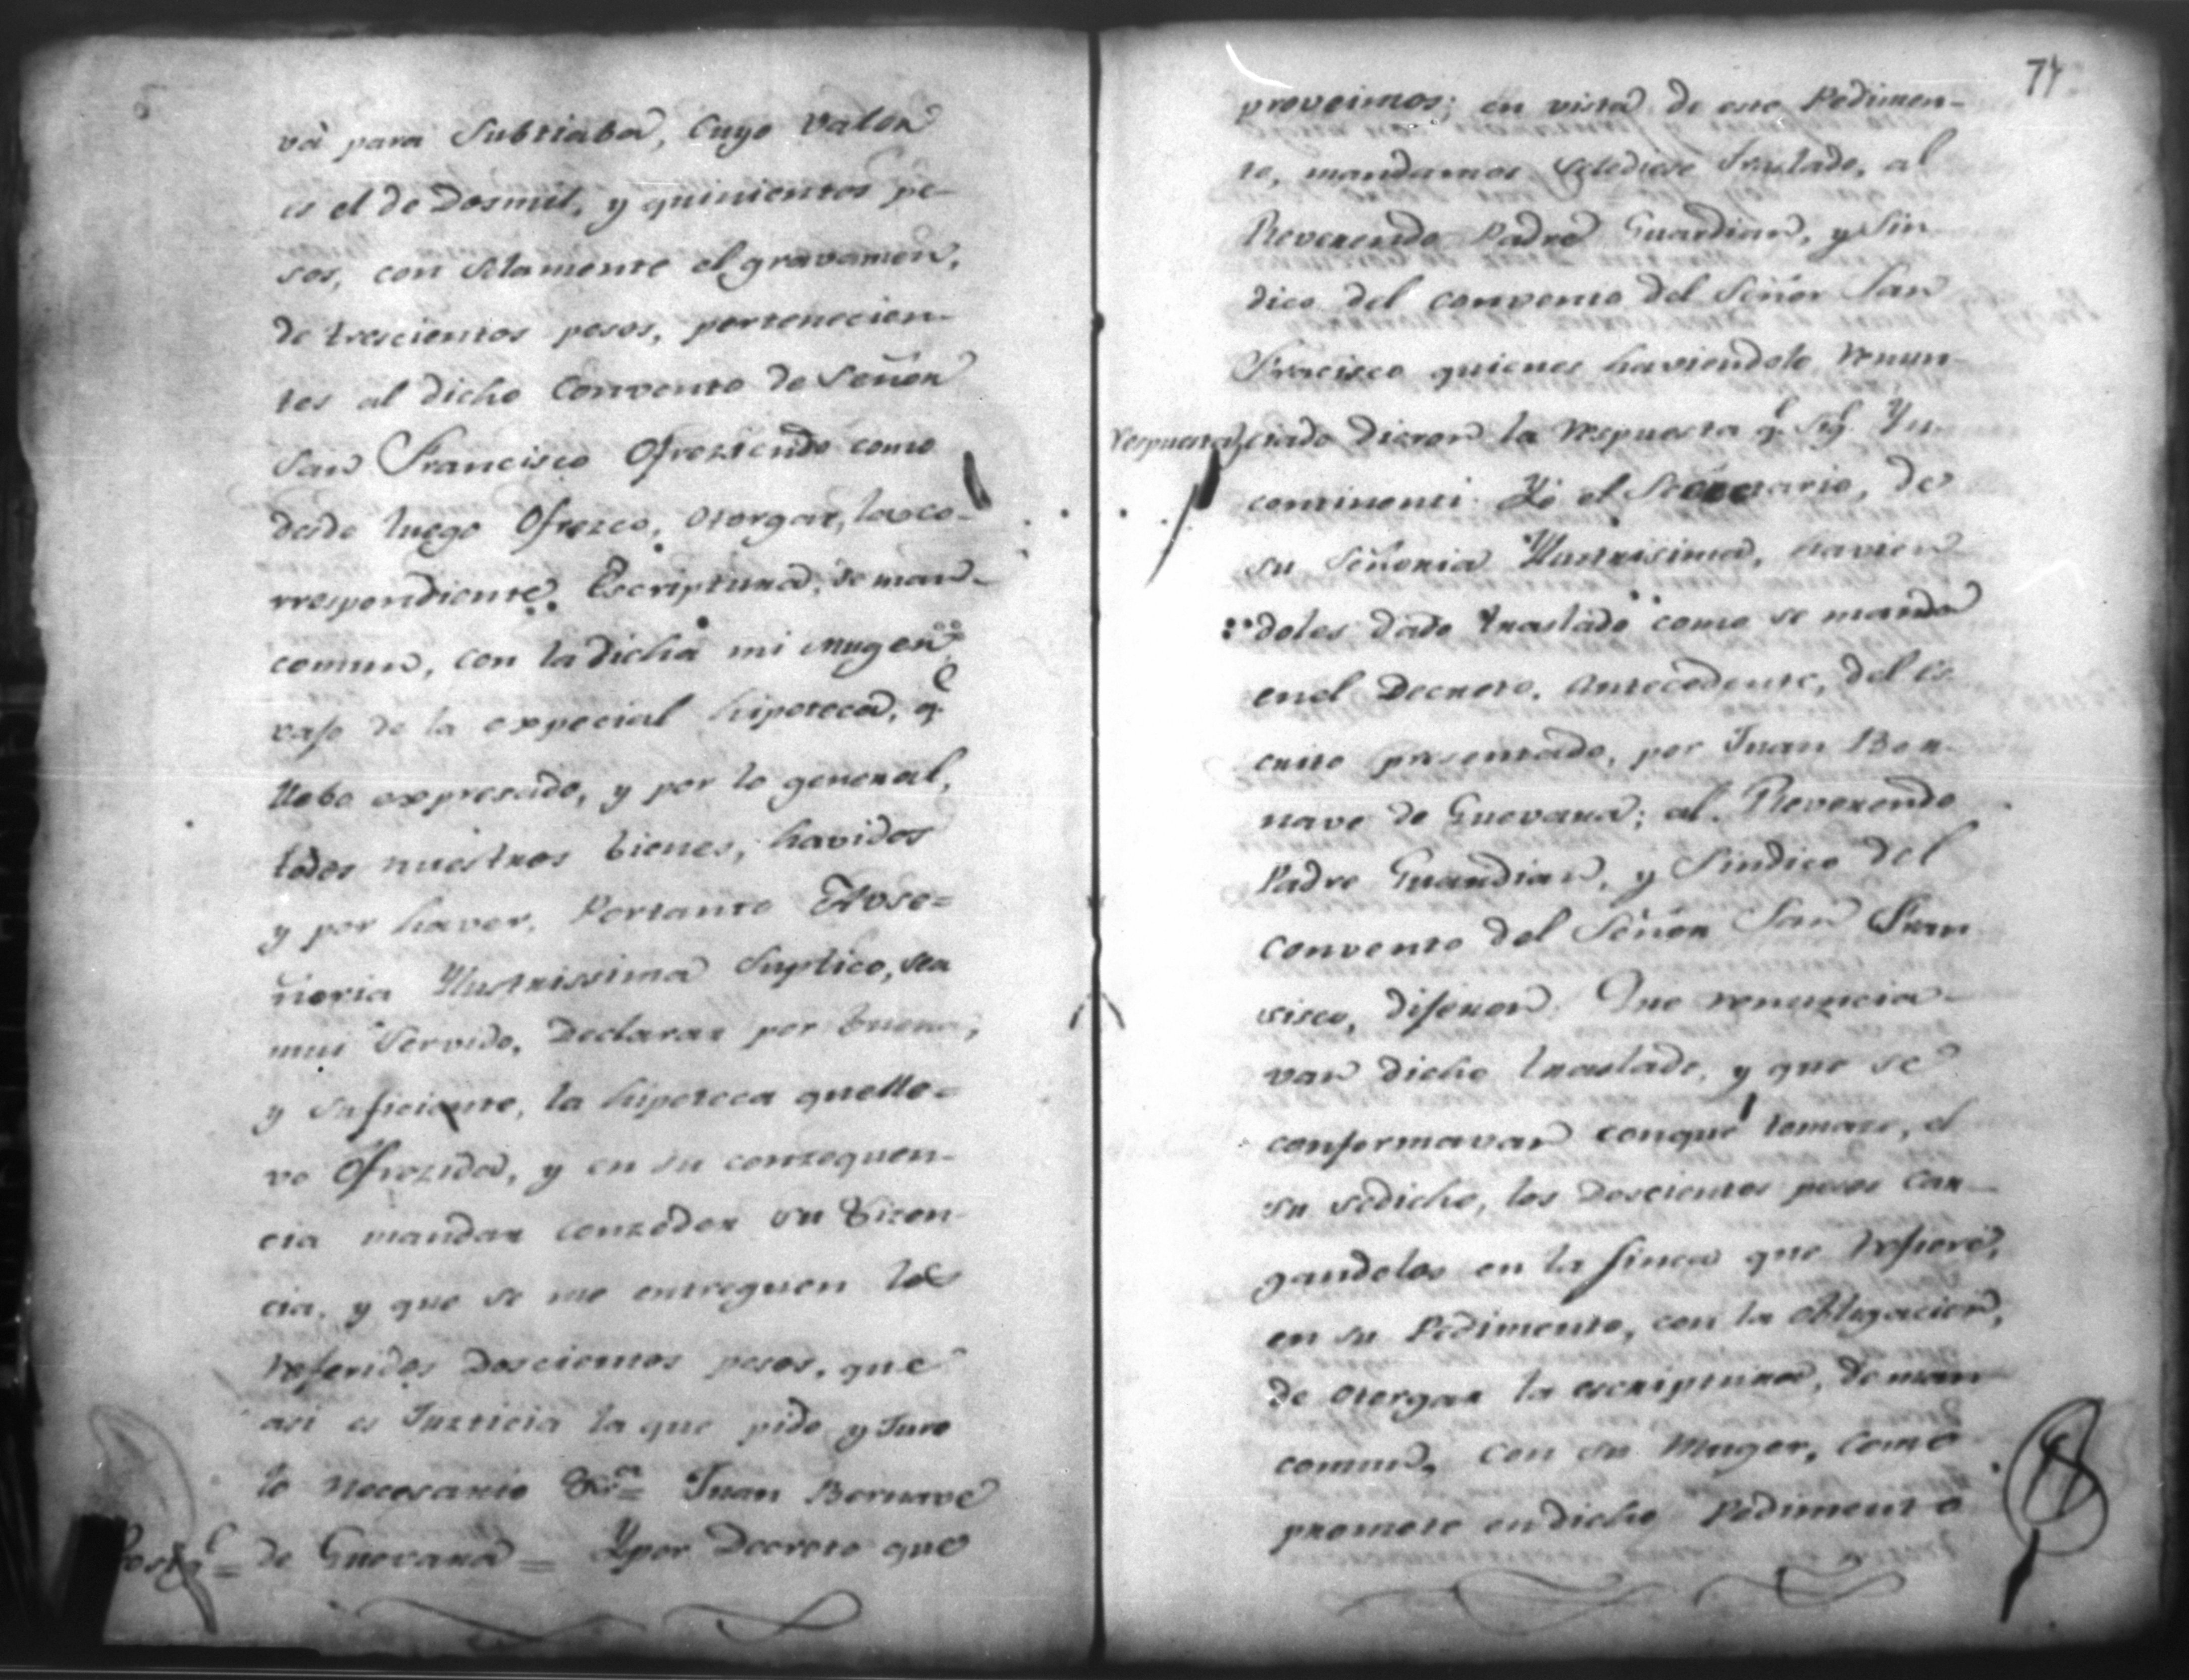 và para Subtiaba, Cuyo valor
es el de Dosmil, y quinientos pe-
sos, con Solamente el gravamen,
de trescientos pesos, pertenecien-
tes al dicho Convento de Señor
San Francisco Ofreziendo como
desde luego Ofrezco, otorgar, la co-
rrespondiente Escriptura, de man-
comun, con la dicha mi Muger
vaxo de la expecial hipoteca, q̃
llebo expresado, y por lo general,
todos nuestros bienes, havidos
y por haver. Portanto Avse=
ñoria Yllustrissima Suplico, sea
mui Servido, Declarar por buena,
y suficiente, la hipoteca quelle=
vo Ofrezida, y en su consequen-
cia mandar conzeder su Licen-
cia, y que se me entreguen los
referidos Doscientos pesos, que
asi es Justicia la que pido y Juro
lo necesario &ra= Juan Bernave
de Guevara = Y por Decreto que
74
proveimos; en vista de este Pedimen-
to, mandamos selediese traslado, al
Reverendo Padre Guardian, y Sin
dico del convento del Señor San
Francisco quienes haviendolo renun-
Respuesta ciado dieron la respuesta q̃ sig.e Yn
continenti. Yo el Secretario, de
su Señoria Yllustrisima, havien
doles dado traslado como se manda
enel Decreto, Antecedente, del es
crito presentado, por Juan Ber-
nave de Guevara; al Reverendo
Padre Guardian, y Sindico del
convento del Señor San Fran
sisco, dixeron Que renuncia-
van dicho traslado, y que se
conformavan conque tomase, el
su sodicho, los Doscientos pesos Car-
gandolos en la finca que refiere,
en su Pedimento, con la obligacion,
de otorgar la escriptura, de man
comun, con su Muger, como
promete endicho Pedimento